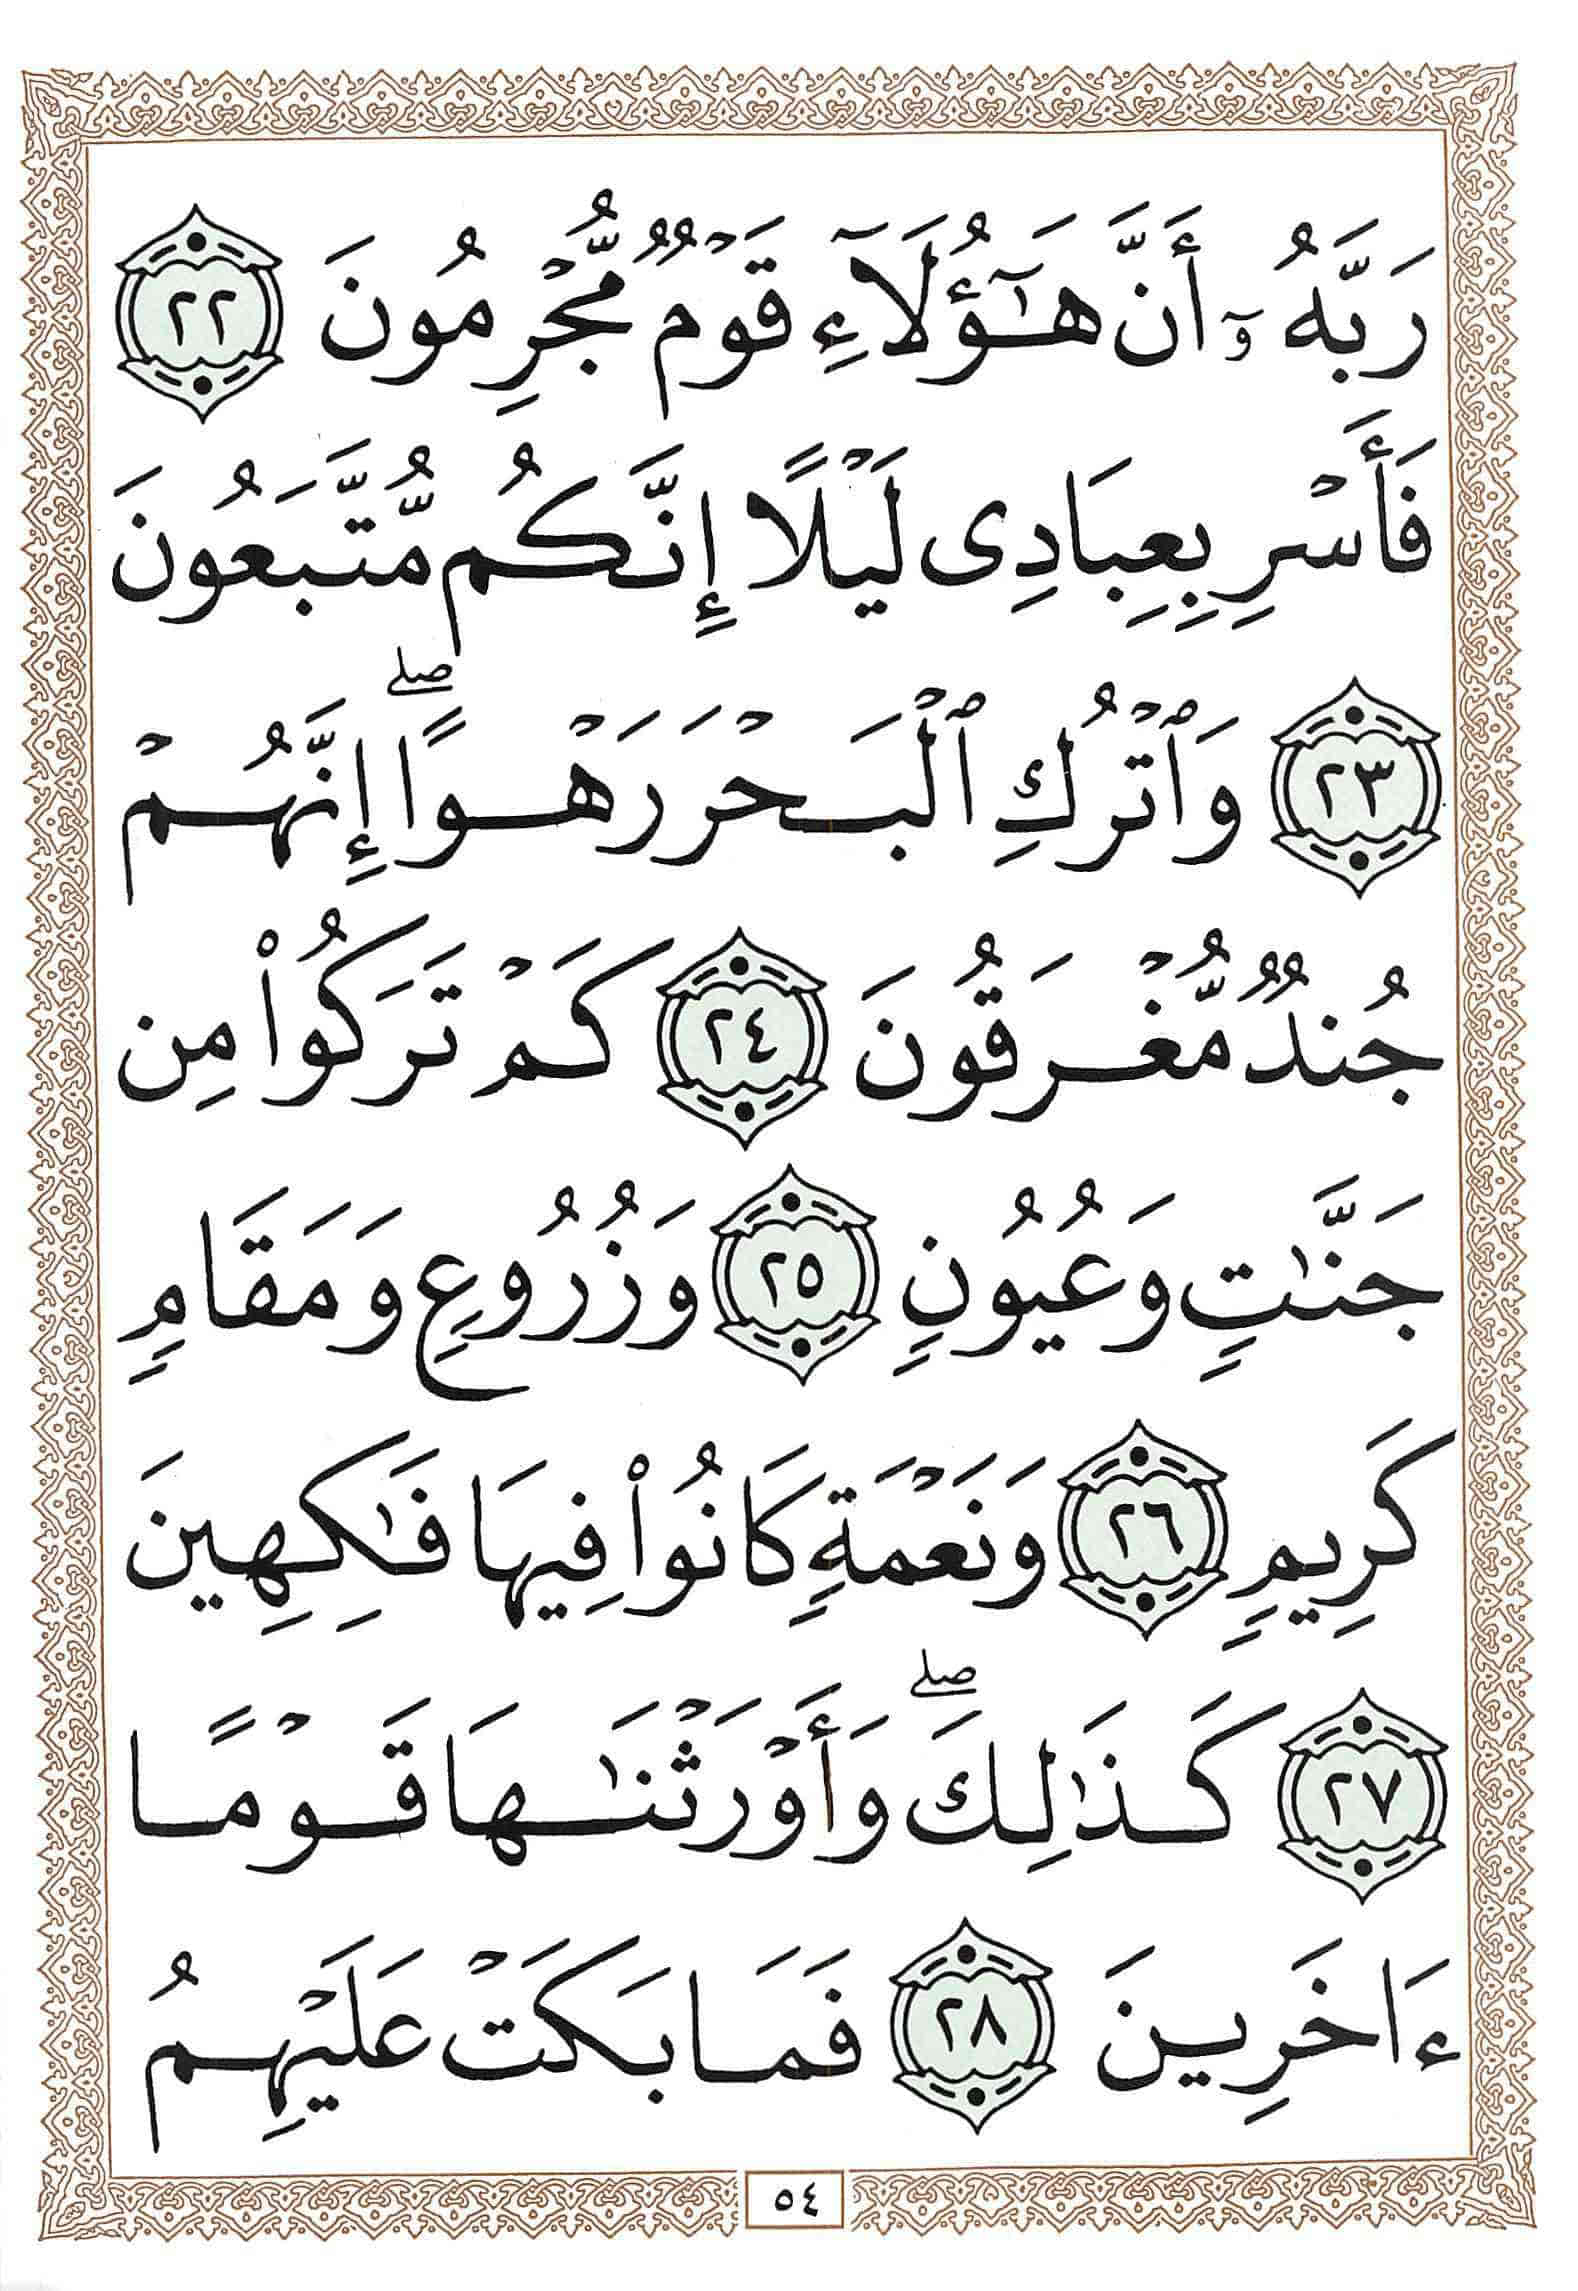 رَبَّهُۥٓ أَنَّ هَـٰٓؤُلَآءِ قَوْمٌ مُّجْرِمُونَ ٢٢
فَأَسْرِ بِعِبَادِى لَيْلًا إِنَّكُم مُّتَّبَعُونَ
٢٣ وَٱتْرُكِ ٱلْبَحْرَ رَهْوًا ۖ إِنَّهُمْ
جُندٌ مُّغْرَقُونَ ٢٤ كَمْ تَرَكُوا۟ مِن
جَنَّـٰتٍ وَعُيُونٍ ٢٥ وَزُرُوعٍ وَمَقَامٍ
كَرِيمٍ ٢٦ وَنَعْمَةٍ كَانُوا۟ فِيهَا فَـٰكِهِينَ
٢٧ كَذَٰلِكَ ۖ وَأَوْرَثْنَـٰهَا قَوْمًا
ءَاخَرِينَ ٢٨ فَمَا بَكَتْ عَلَيْهِمُ
٥٤